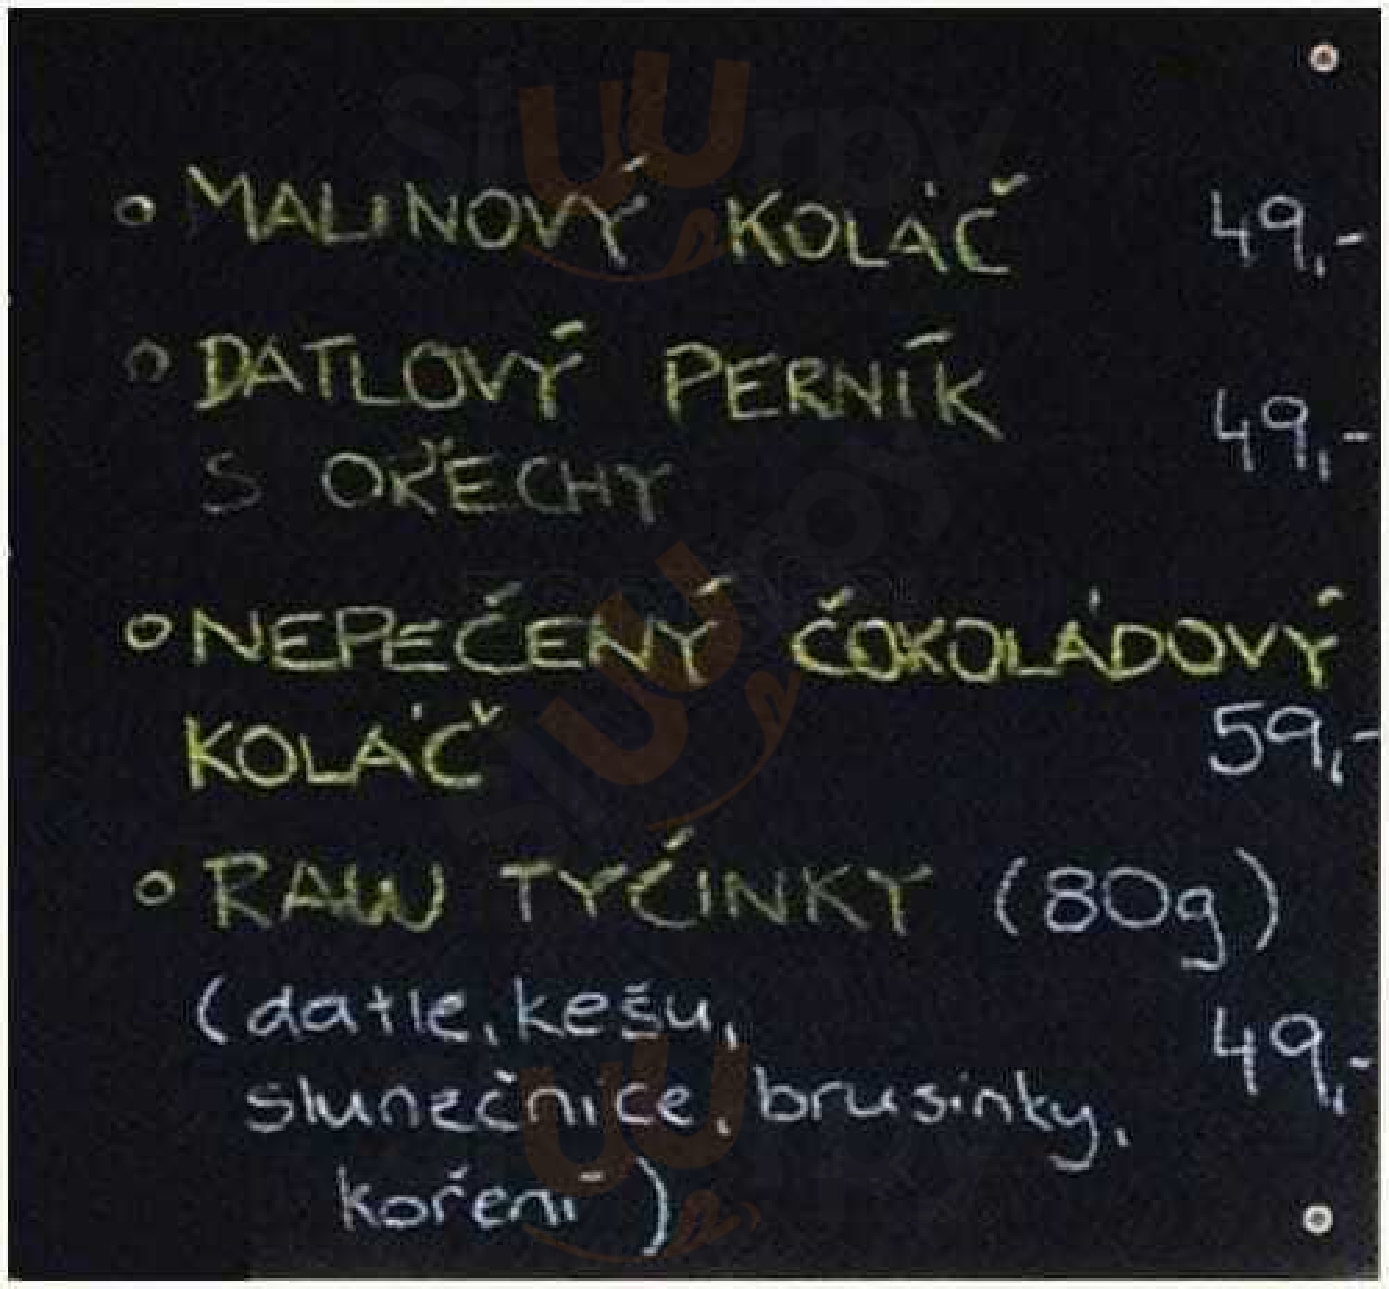 MALINOVÝ KOLÁČ 49,-
DATLOVÝ PERNÍK
49,-
S OŘECHY
NEPEČENÝ ČOKOLÁDOVÝ
KOLÁČ 59,-
RAW TYČINKY (80g)
(datle, kešu,
49,-
slunečnice, brusinky,
koření)